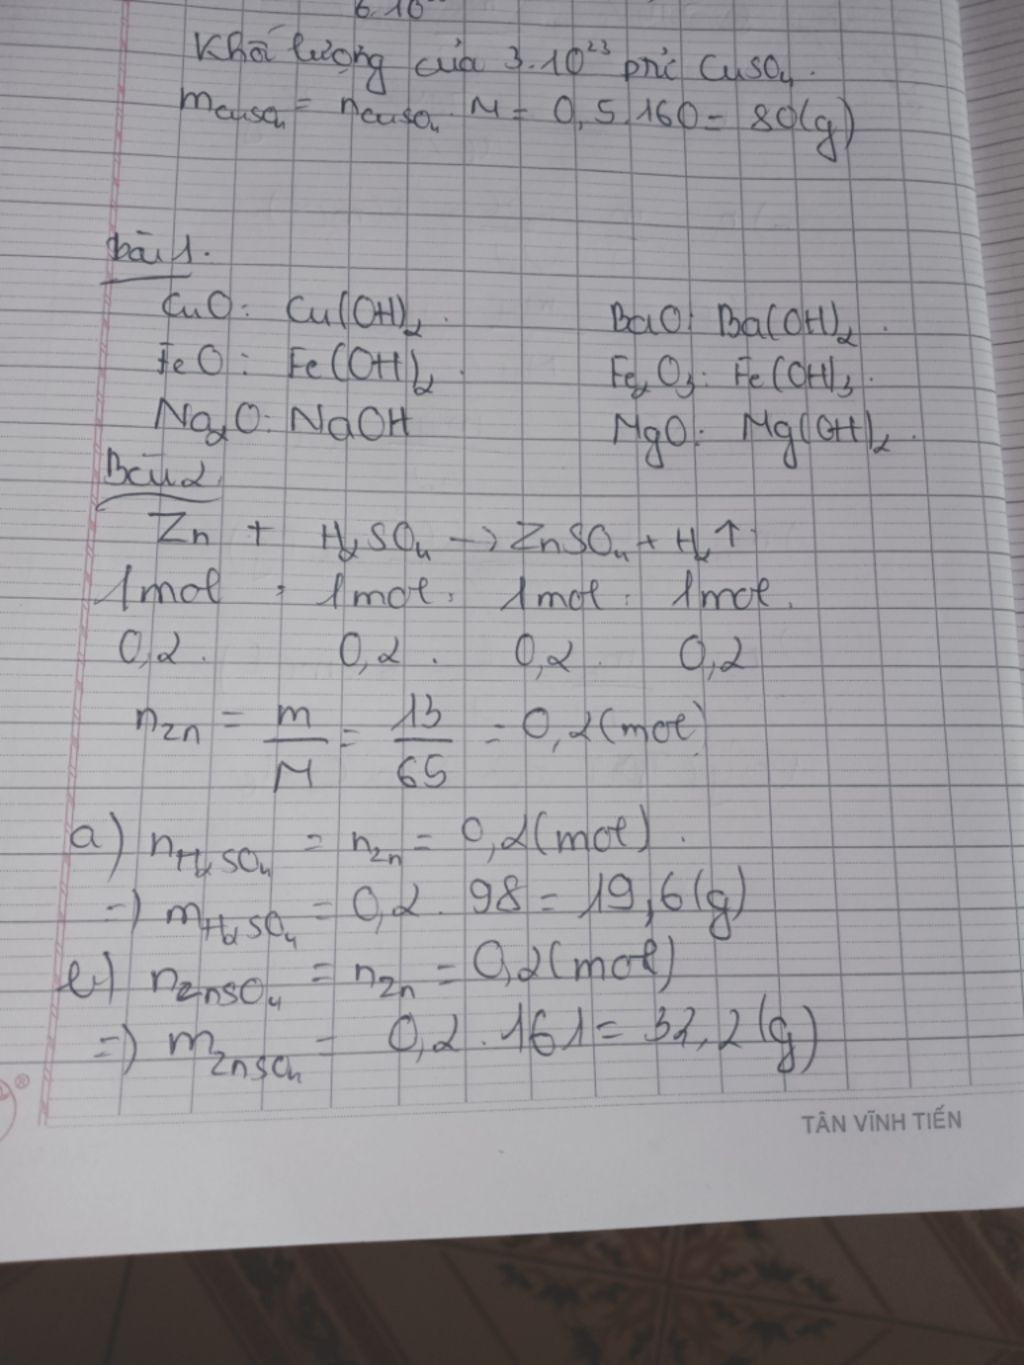 6.10
Khối lượng của 3.10²³ ptử CuSO₄.
mCuSO₄ = nCuSO₄. M = 0,5.160 = 80(g)
bài 1.
CuO: Cu(OH)₂. BaO: Ba(OH)₂.
FeO: Fe(OH)₂. Fe₂O₃: Fe(OH)₃.
Na₂O: NaOH MgO: Mg(OH)₂.
Bài 2
Zn + H₂SO₄ → ZnSO₄ + H₂↑
1mol : 1mol : 1mol : 1mol.
0,2. 0,2. 0,2. 0,2
nZn = m/M = 13/65 = 0,2(mol)
a) nH₂SO₄ = nZn = 0,2(mol).
=) mH₂SO₄ = 0,2. 98 = 19,6(g)
b) nZnSO₄ = nZn = 0,2(mol)
=) mZnSO₄ = 0,2.161 = 32,2(g)
TÂN VĨNH TIẾN